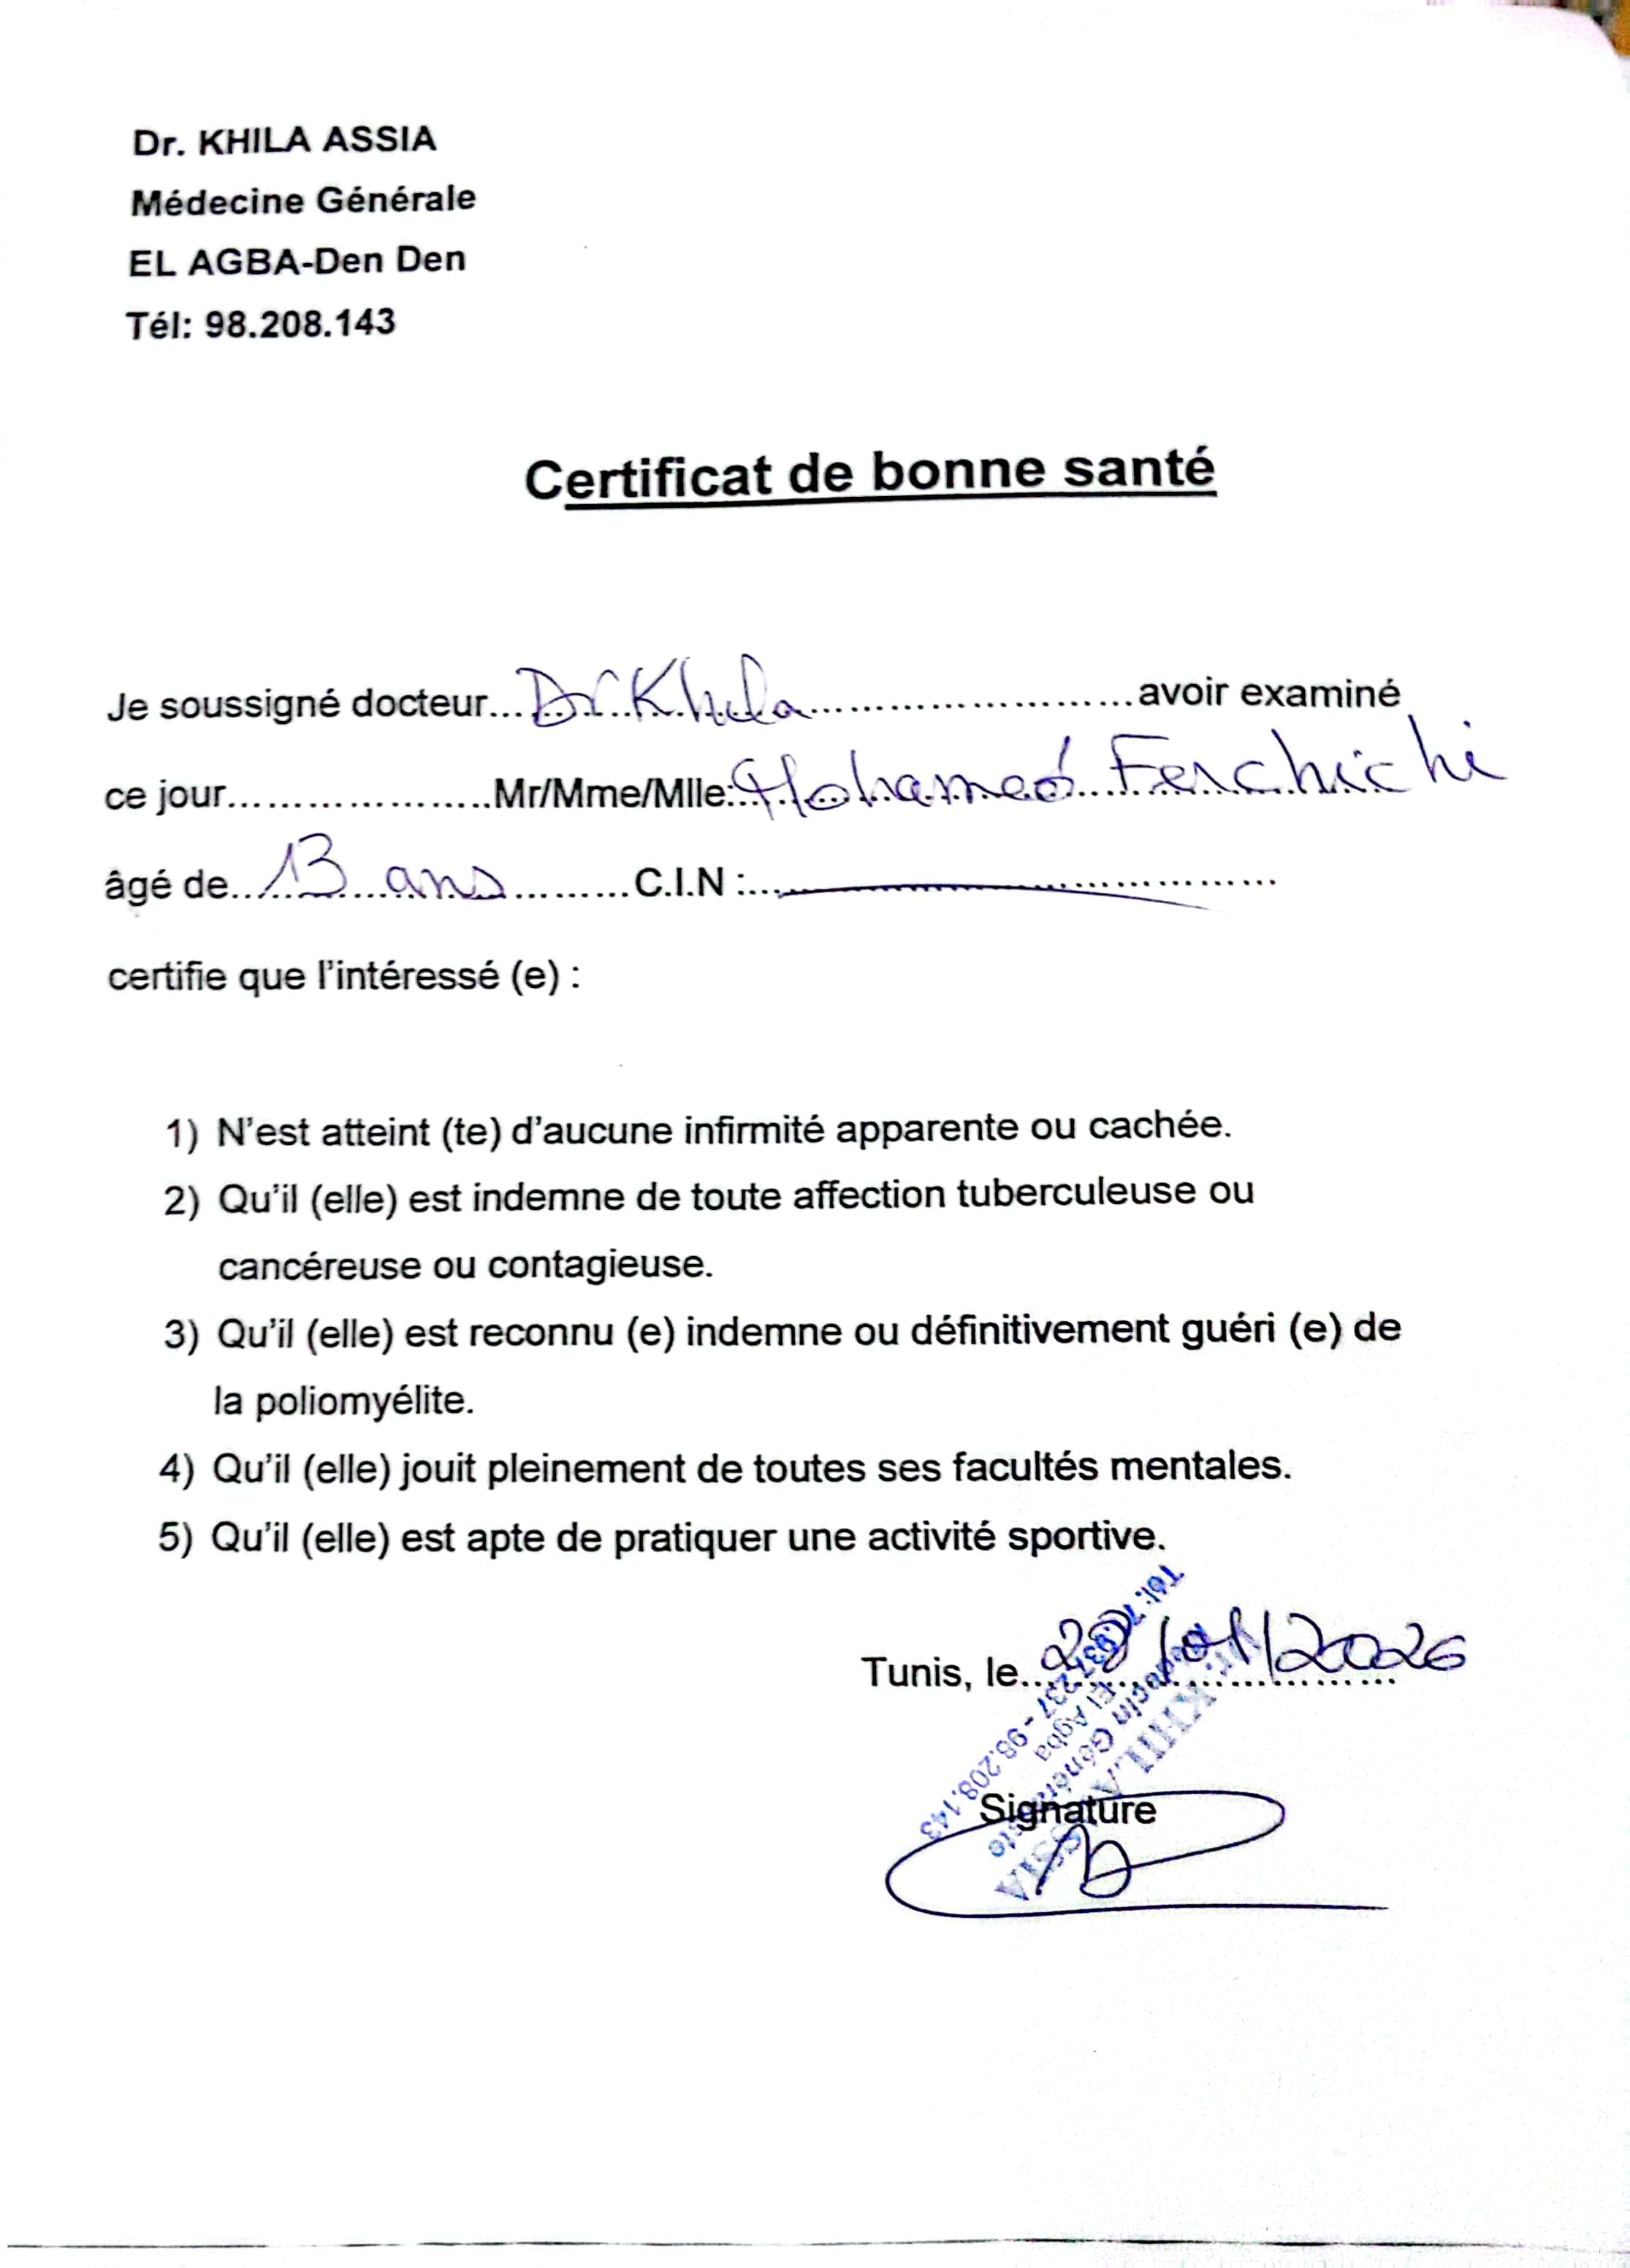 Dr. KHILA ASSIA
Médecine Générale
EL AGBA-Den Den
Tél: 98.208.143
Certificat de bonne santé
Je soussigné docteur...Dr Khila...avoir examiné
ce jour.....................Mr/Mme/Mlle:Mohamed Ferchichi
âgé de...13 ans..........C.I.N :...
certifie que l'intéressé (e) :
1) N'est atteint (te) d'aucune infirmité apparente ou cachée.
2) Qu'il (elle) est indemne de toute affection tuberculeuse ou
cancéreuse ou contagieuse.
3) Qu'il (elle) est reconnu (e) indemne ou définitivement guéri (e) de
la poliomyélite.
4) Qu'il (elle) jouit pleinement de toutes ses facultés mentales.
5) Qu'il (elle) est apte de pratiquer une activité sportive.
Tunis, le.../01/2026
Dr. KHILA ASSIA
Médecin Généraliste
El Agba
98.208.143
Signature